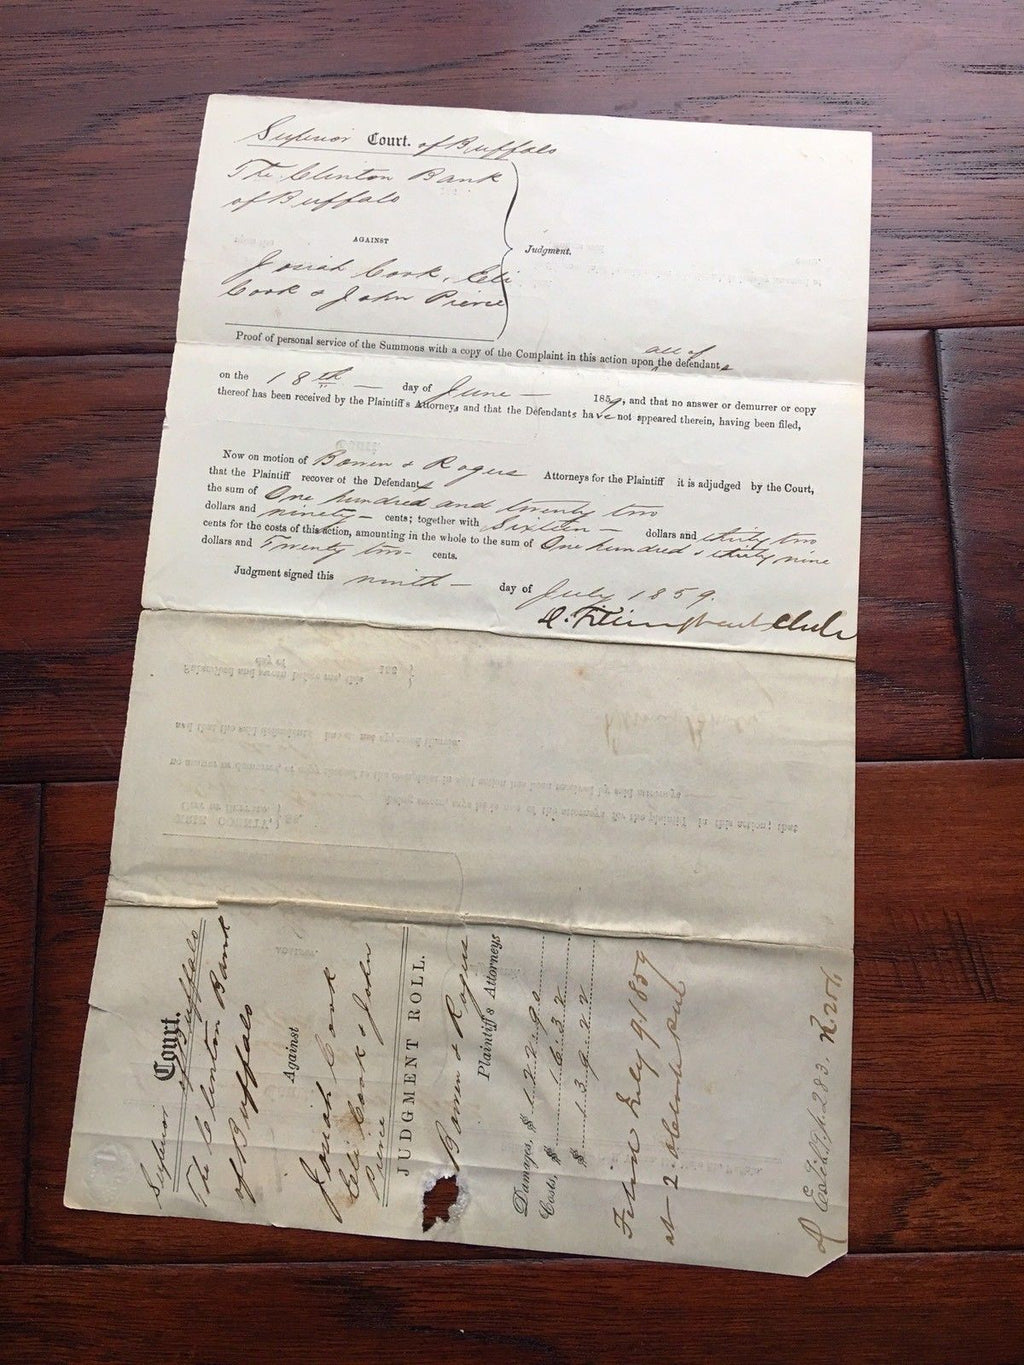 Superior Court. of Buffalo
The Clinton Bank
of Buffalo
AGAINST
Judgment.
Josiah Cook, Eli
Cook & John Pierce
all of
Proof of personal service of the Summons with a copy of the Complaint in this action upon the defendants
on the 18th day of June 1859, and that no answer or demurrer or copy
thereof has been received by the Plaintiff's Attorneys, and that the Defendants have not appeared therein, having been filed,
Now on motion of Bowen & Rogers Attorneys for the Plaintiff it is adjudged by the Court,
that the Plaintiff recover of the Defendants
the sum of One hundred and twenty two
dollars and ninety cents; together with Sixteen dollars and thirty two
cents for the costs of this action, amounting in the whole to the sum of One hundred & thirty nine
dollars and Twenty two cents.
Judgment signed this ninth day of July 1859.
Clerk
Superior Court.
of Buffalo
The Clinton Bank
of Buffalo
Against
Josiah Cook
Eli Cook & John
Pierce
JUDGMENT ROLL.
Bowen & Rogers
Plaintiff's Attorneys
Damages, $ 122.90
Costs, $ 16.32
$ 139.22
Filed July 9. 1859
at 2 o'clock P.M.